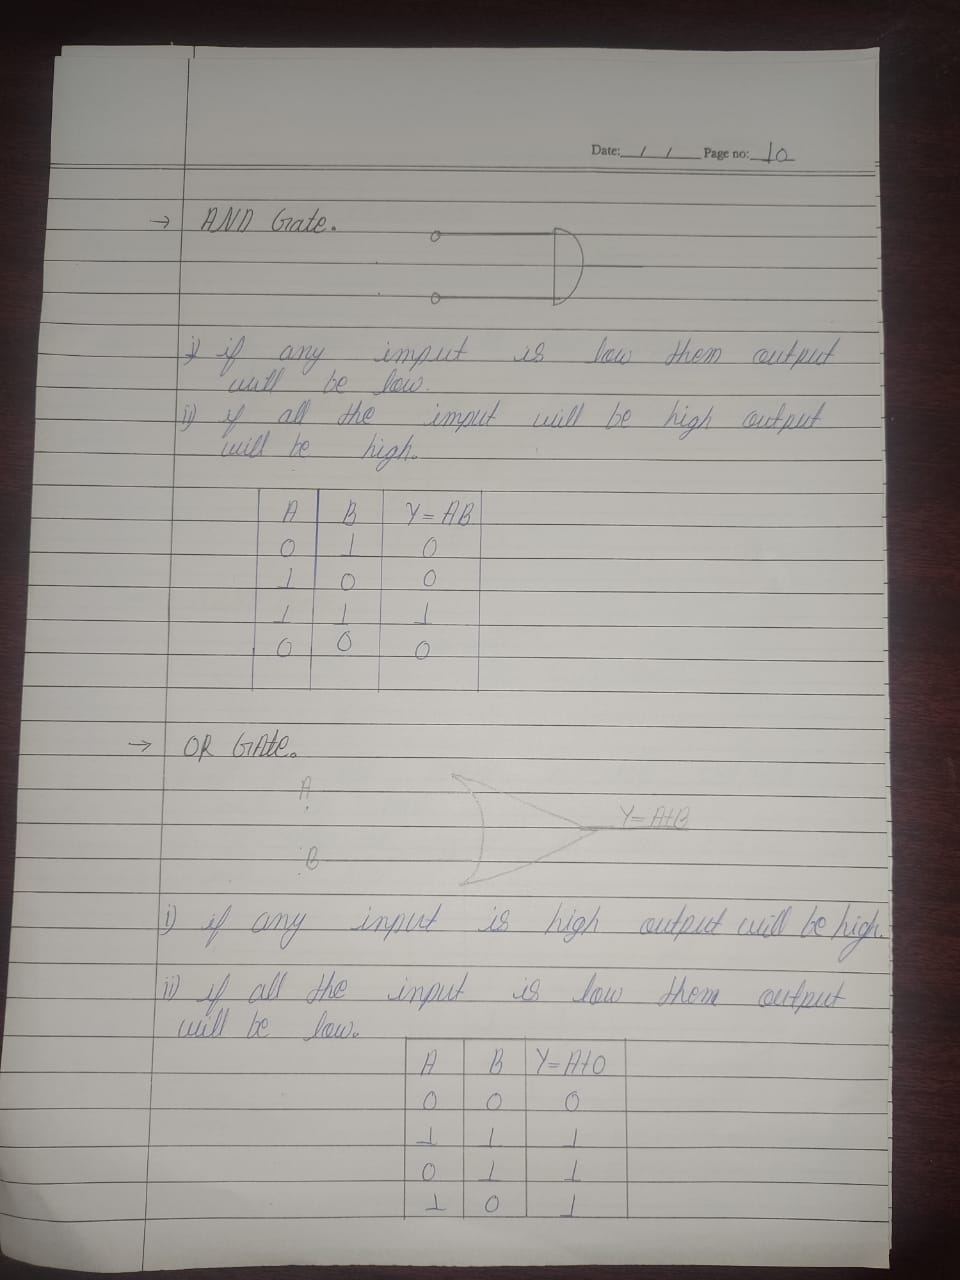 Date: / / Page no: 10
→ AND Gate.
i) if any imput is low them output
will be low.
ii) if all the imput will be high output
will be high.
A B Y=AB
0 1 0
1 0 0
1 1 1
0 0 0
→ OR GAte.
A
Y=A+B
B
i) if any input is high output will be high.
ii) if all the input is low them output
will be low.
A B Y=A+0
0 0 0
1 1 1
0 1 1
1 0 1